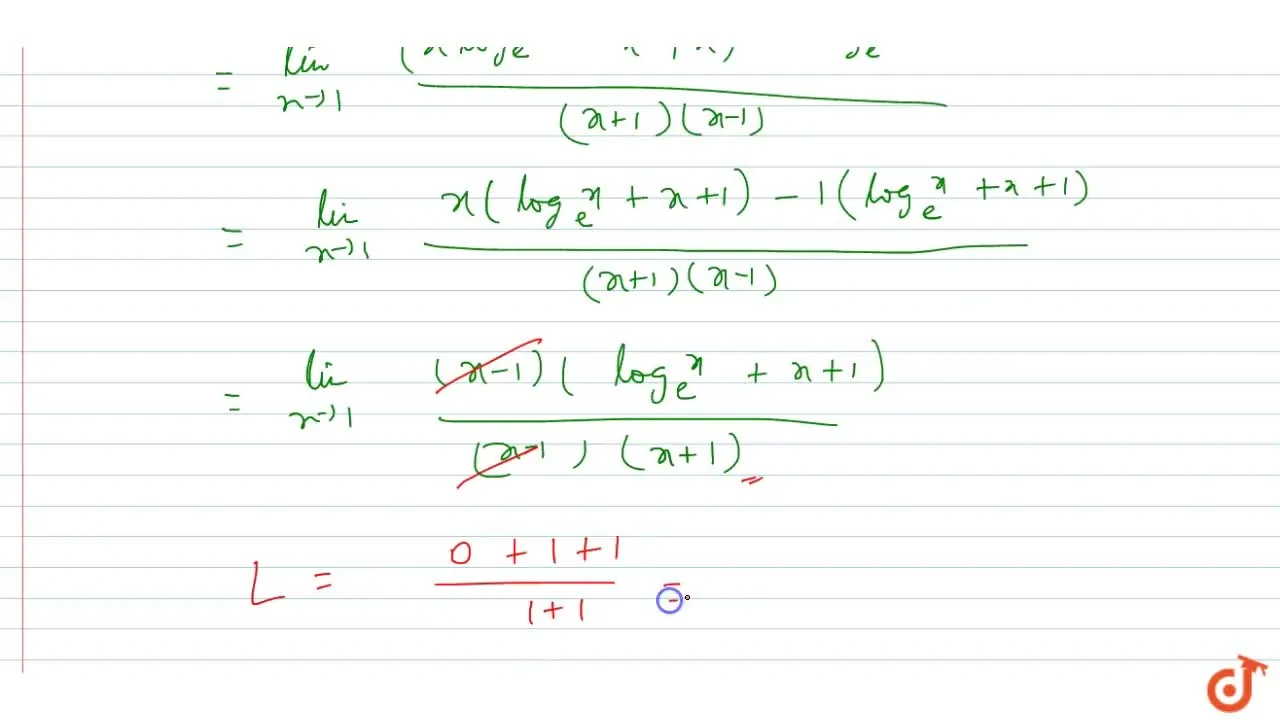 = lim x→1
(x+1)(x-1)
= lim x→1 x(log_e^x + x+1) - 1(log_e^x + x + 1)
(x+1)(x-1)
= lim x→1 (x-1)(log_e^x + x+1)
(x-1)(x+1)
L = 0 + 1 + 1 =
1 + 1